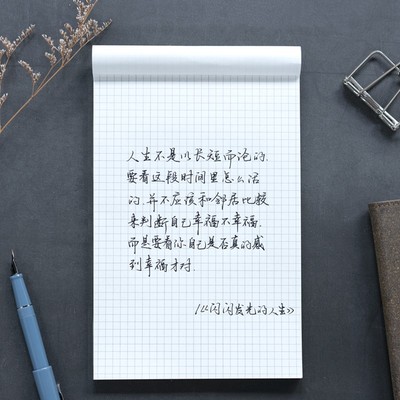 人生不是以长短而论的.
要看这段时间里怎么活
的.并不应该和邻居比较
来判断自己幸福不幸福.
而是要看你自己是否真的感
到幸福才对.
/《闪闪发光的人生》